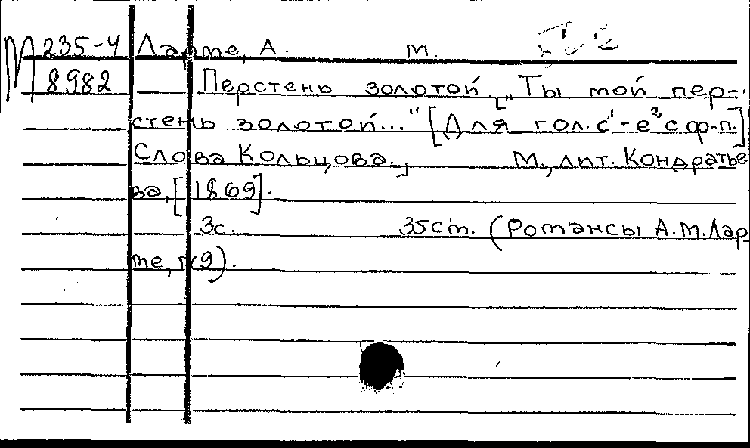 М 235-4 Ларме, А. М.
8982 Перстень золотой. „Ты мой пер-
стень золотой..." [Для гол. с¹-е² с ф-п.]
Слова Кольцова., М., лит. Кондратье
ва, [1869].
3с. 35ст. (Романсы А.М.Лар
ме, 9).